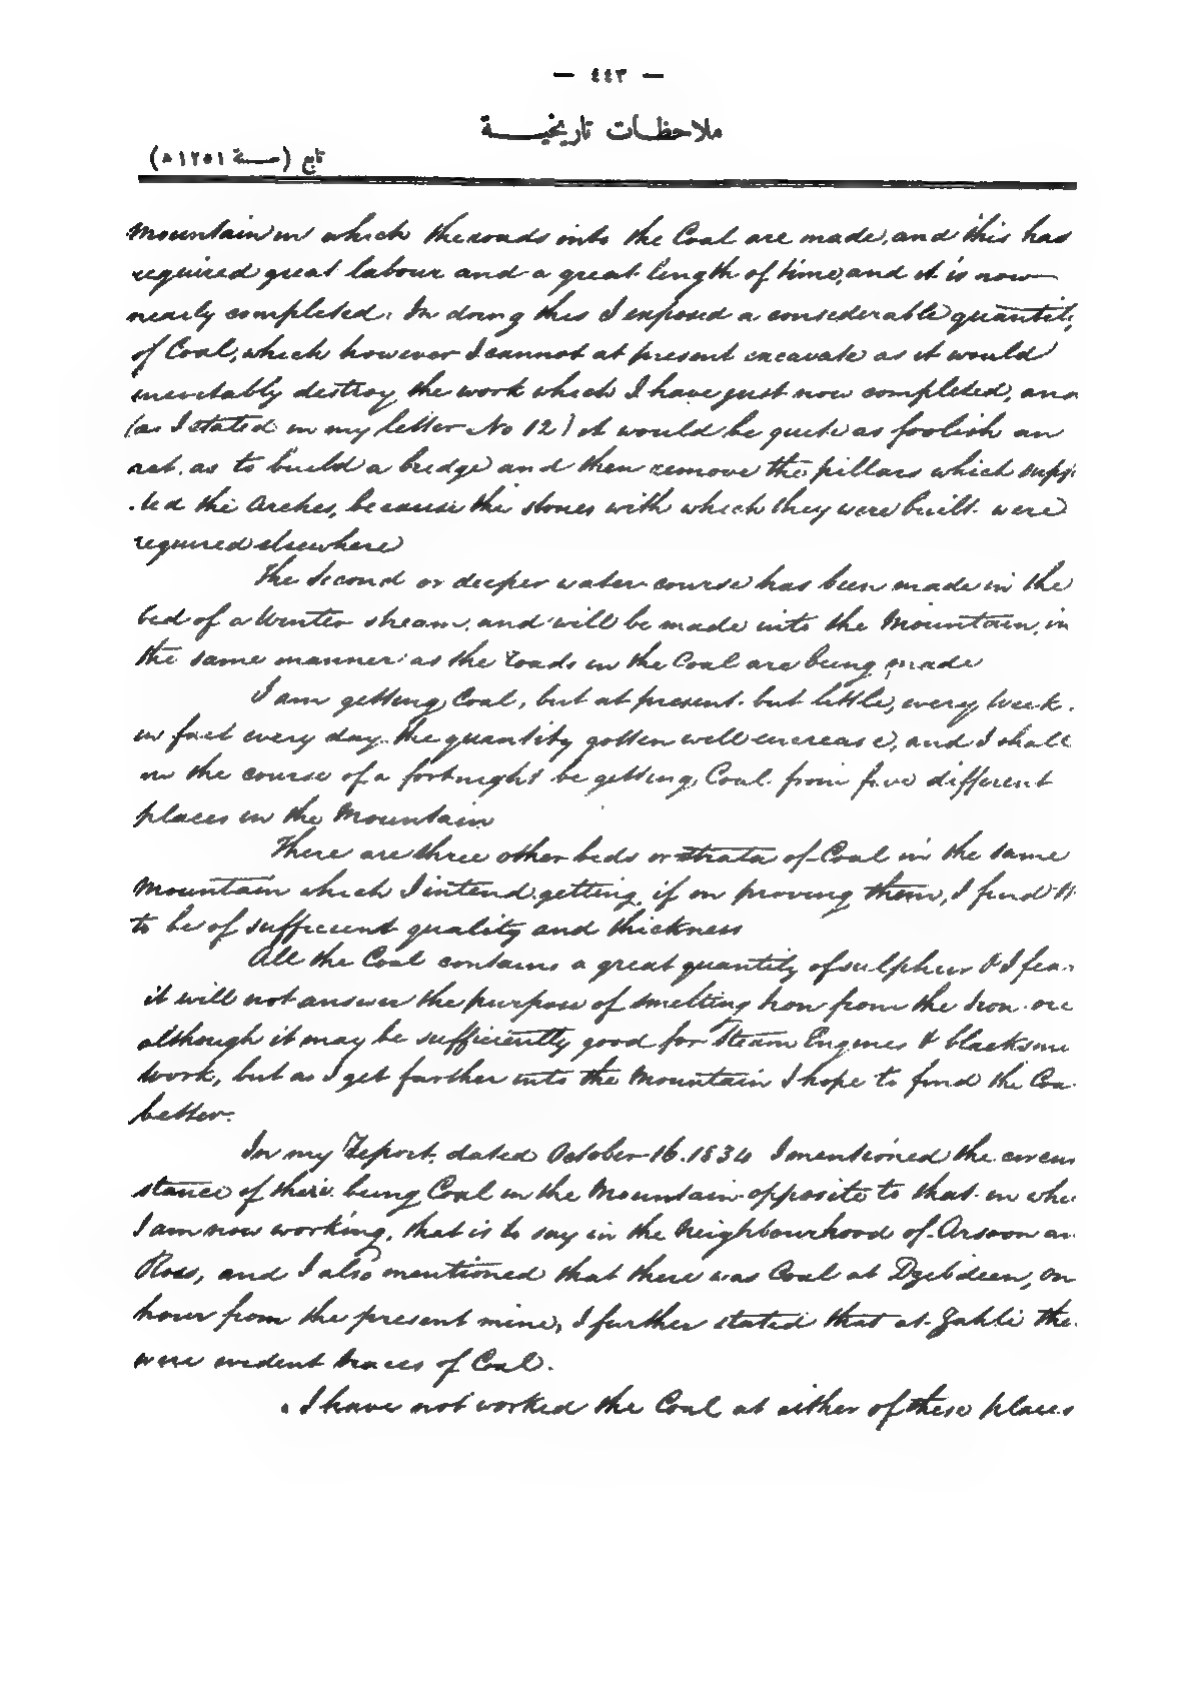 — ٤٤٣ —
ملاحظات تاريخية
تابع (سنة ١٢٥١ ھ)
Mountain in which the roads into the Coal are made, and this has
required great labour and a great length of time, and it is now
nearly completed. In doing this I exposed a considerable quantit
of Coal, which however I cannot at present excavate as it would
inevitably destroy the work which I have just now completed, and
(as I stated in my letter No 12) it would be quite as foolish an
act. as to build a bridge and then remove the pillars which supp
.ted the Arches, because the stones with which they were built were
required elsewhere
The Second or deeper water course has been made in the
bed of a Winter stream, and will be made into the Mountain, in
the same manner as the roads in the Coal are being made
I am getting Coal, but at present but little, every Week.
in fact every day. The quantity gotten will increase, and I shall
in the course of a fortnight be getting Coal from five different
places in the Mountain
There are three other beds or strata of Coal in the same
Mountain which I intend getting, if on proving them, I find
to be of sufficient quality and thickness
All the Coal contains a great quantity of sulphur & I fea
it will not answer the purpose of smelting Iron from the Iron ore
although it may be sufficiently good for Steam Engines & blacksmi
Work, but as I get further into the Mountain I hope to find the Coa
better.
In my Report, dated October 16. 1834 I mentioned the circum
stance of there being Coal in the Mountain opposite to that in whi
I am now working, that is to say in the Neighbourhood of Arsoon an
Ras, and I also mentioned that there was Coal at Dgebdeen, on
hour from the present mine, I further stated that at Zahli the
were evident traces of Coal.
I have not worked the Coal at either of these places